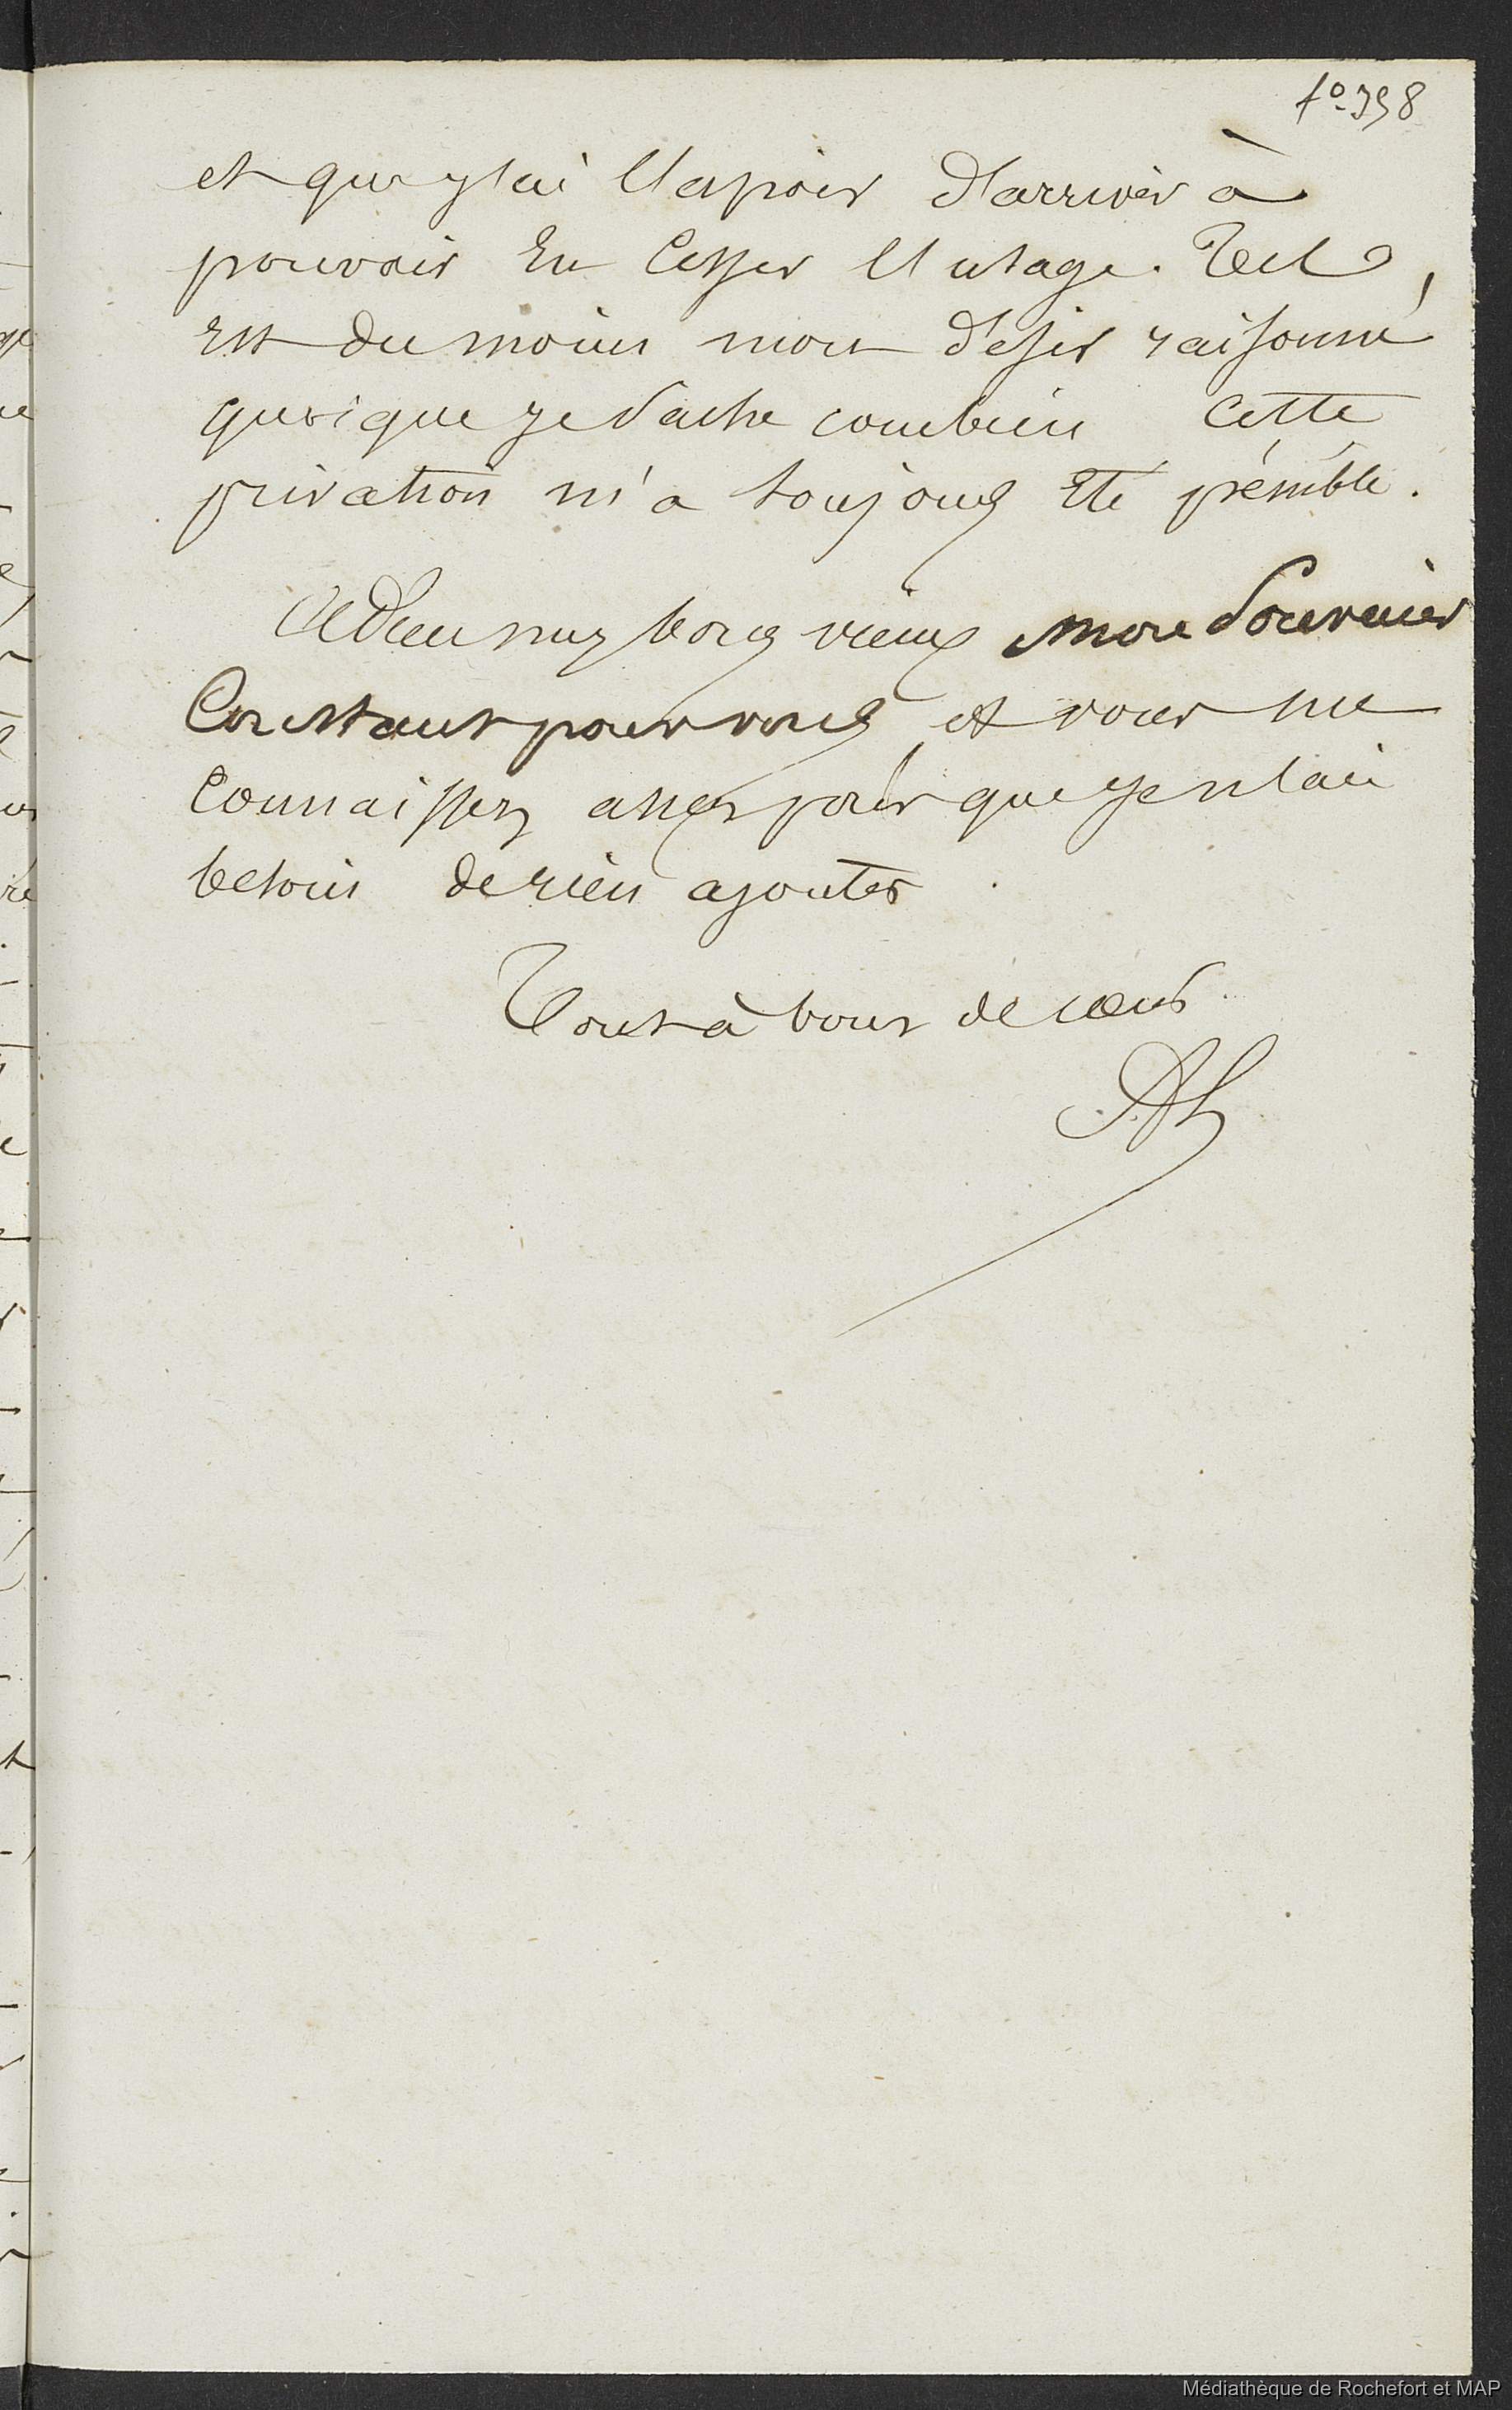 fo 398
et que j'ai l'espoir d'arriver à
pouvoir en cesser l'usage. Tel
est du moins mon désir raisonné,
quoique je sache combien cette
privation m'a toujours été pénible.
Adieu mes bons vieux mon souvenir
constant pour vous et vous me
connaissez assez pour que je n'aie
besoin de rien ajouter.
Tout à vous de cœur.
Médiathèque de Rochefort et MAP